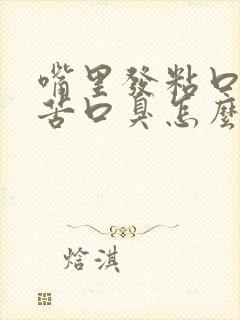 嘴里發粘口
苦口臭怎麽
焓淇